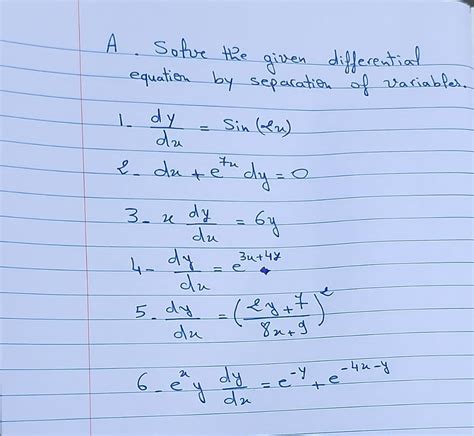 A. Solve the given differential
equation by separation of variables.
1- dy/dx = Sin(2x)
2- dx + e^7x dy = 0
3- x dy/dx = 6y
4- dy/dx = e^3x+4y
5- dy/dx = (2y+7/8x+9)^2
6- e^x y dy/dx = e^-y + e^-4x-y